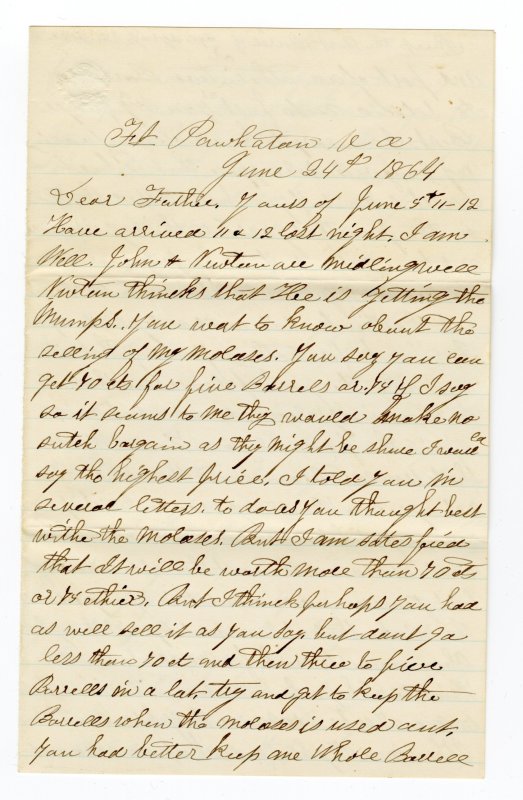 Ft Powhatan Va
June 24th 1864
Dear Father. Yours of June 5th 11-12
Have arrived 11 & 12 last night. I am
Well. John & Newtan are midling well
Newtan thincks that Hee is getting the
Mumps. You wat to know about the
selling of my molases. You say you can
get 70 cts for five Barrels or 75 if I say
so it seams to me they would make no
sutch bargain as they might be shure I would
say the highest price. I told you in
several letters. to do as you thought best
withe the molases. But I am sates fied
that It will be worth more than 70 cts
or 75 ethier. But I thinck perhaps you had
as well sell it as you say but dont go
less than 70 ct and then three to five
Barrells in a lot try and get to keep the
Barrells when the molases is used out.
You had better keep one Whole Barrell